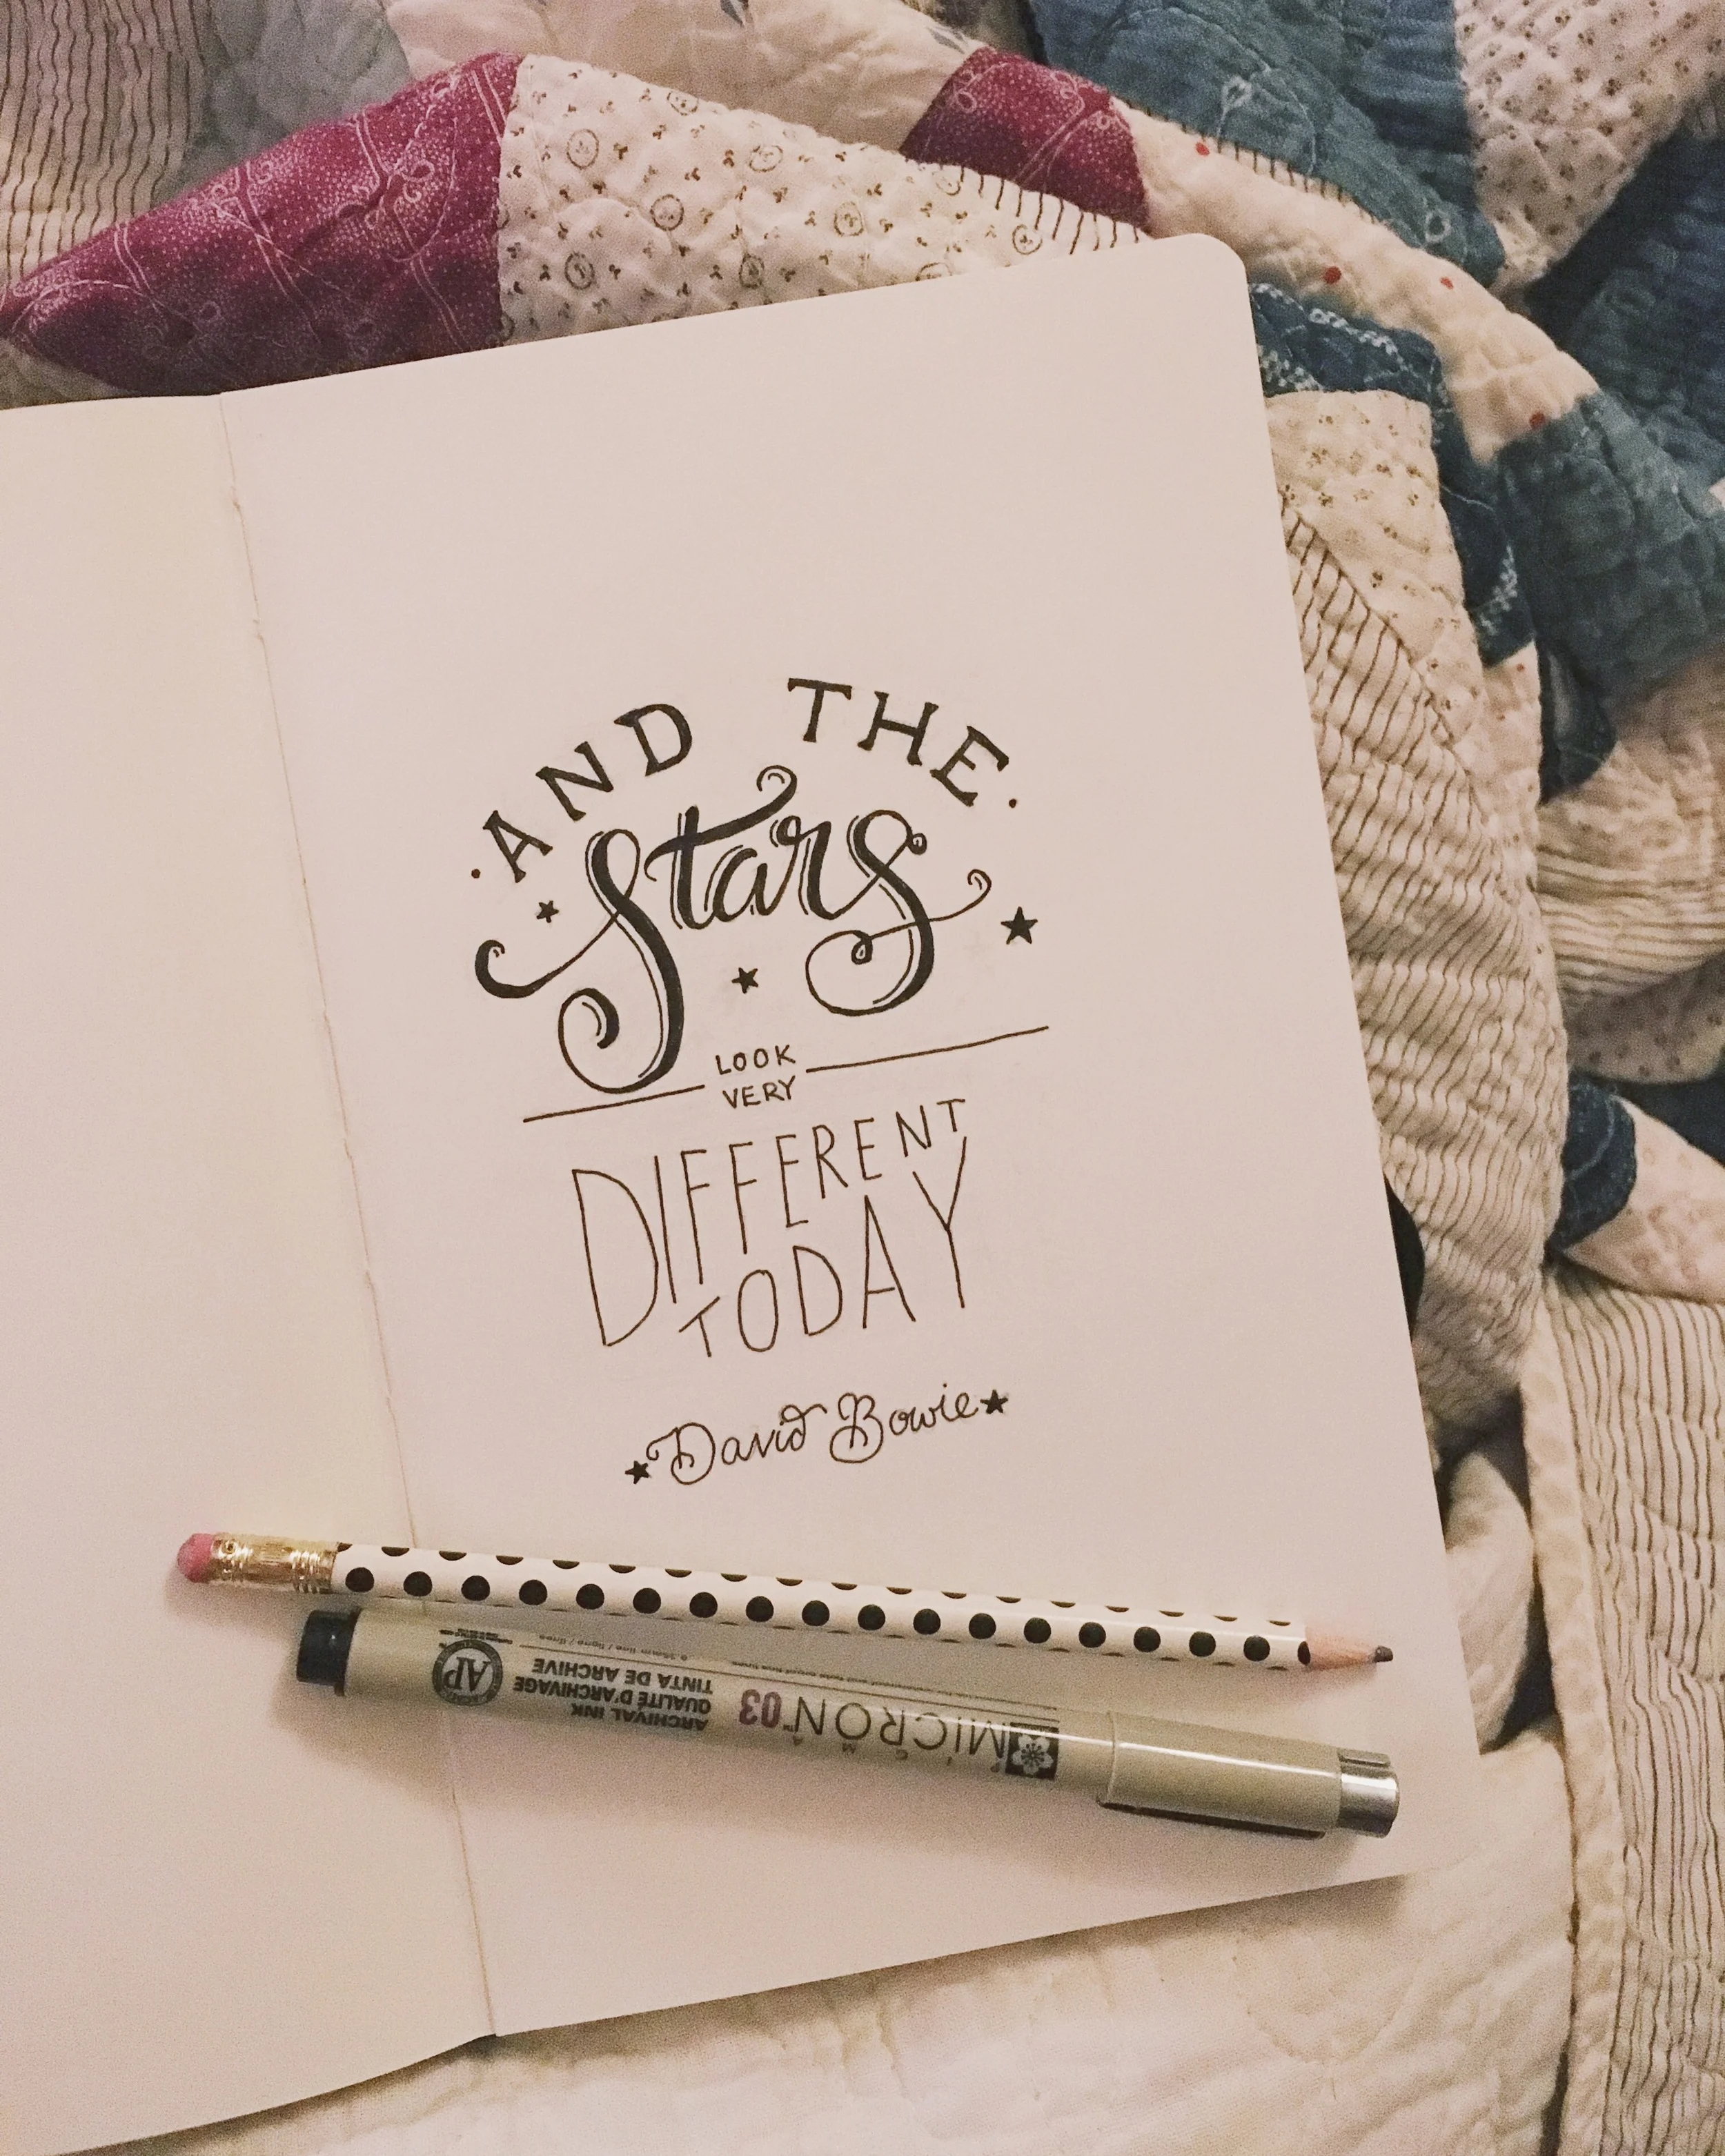 AND THE
Stars
LOOK
VERY
DIFFERENT
TODAY
David Bowie
MICRON 03
ARCHIVAL INK
QUALITÉ D'ARCHIVAGE
TINTA DE ARCHIVE
AP